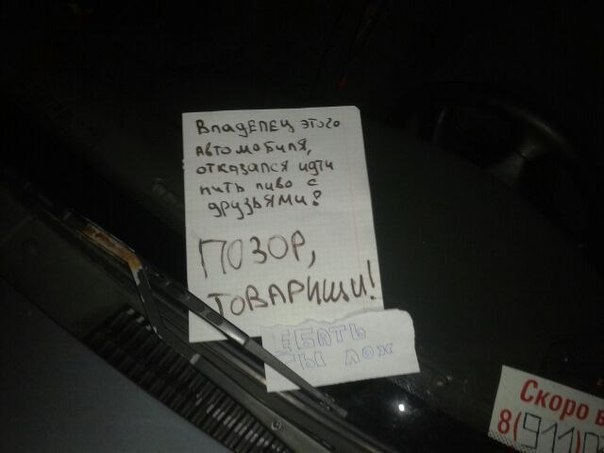 ВладЕЛЕЦ этого
Автомобиля,
отказался идти
пить пиво с
друзьями!
ПОЗОР,
ТОВАРИЩИ!
ЕБАТЬ
ТЫ ЛОХ
Скоро в
8(911)